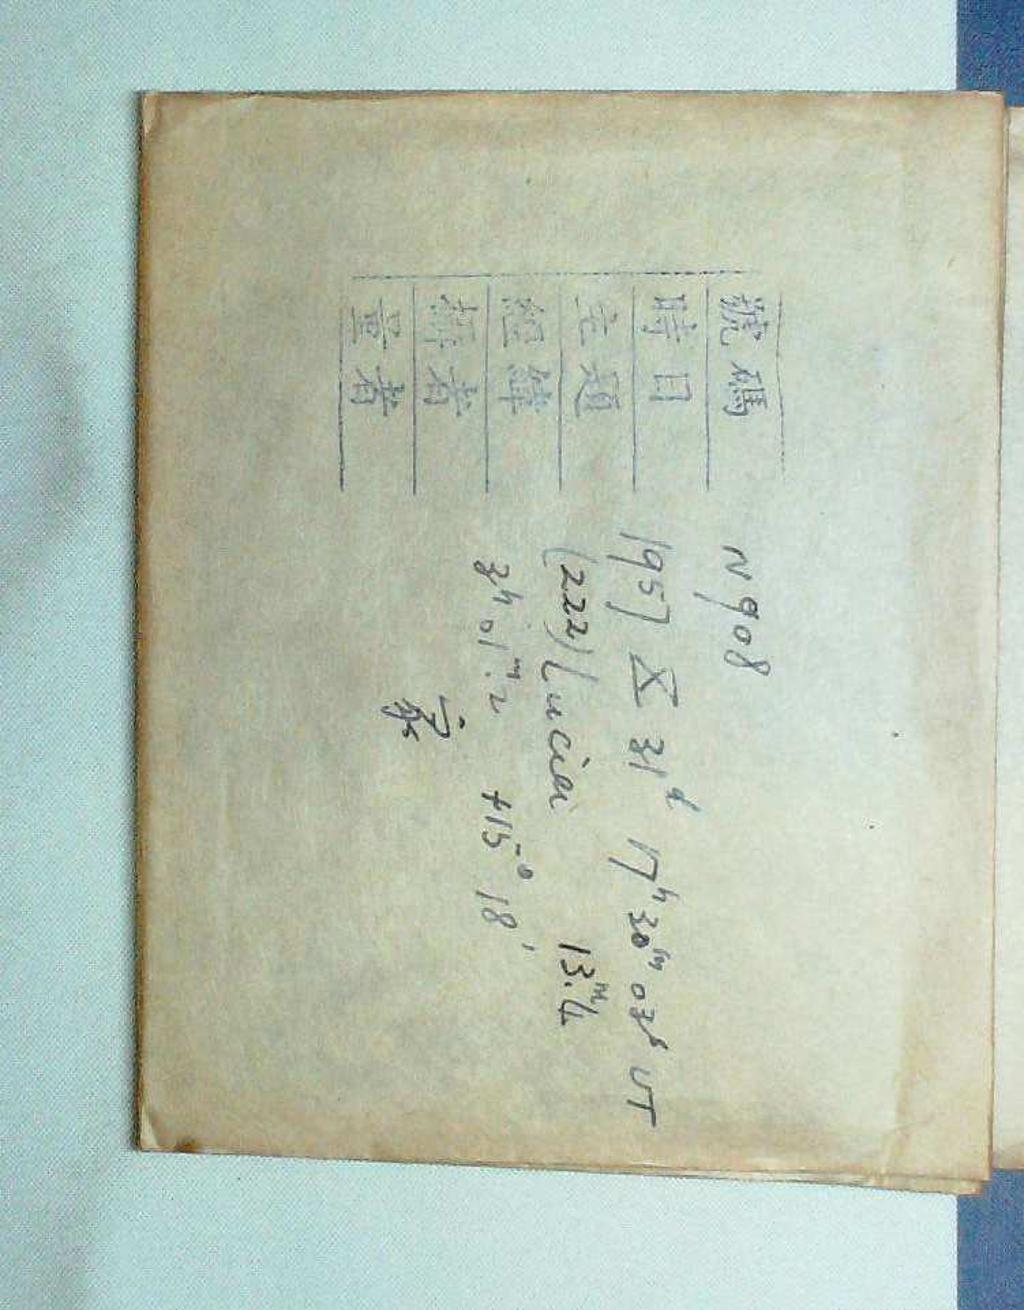 號碼 N908
時日 1957 X 31ᵈ 17ʰ30ᵐ03ˢ UT
主題 (222) Lucia 13ᵐ.4
經緯 3ʰ01ᵐ.2 +15° 18'
攝者
量者